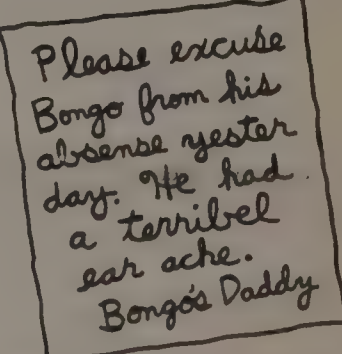 Please excuse
Bongo from his
absense yester
day. He had
a terribel
ear ache.
Bongo's Daddy